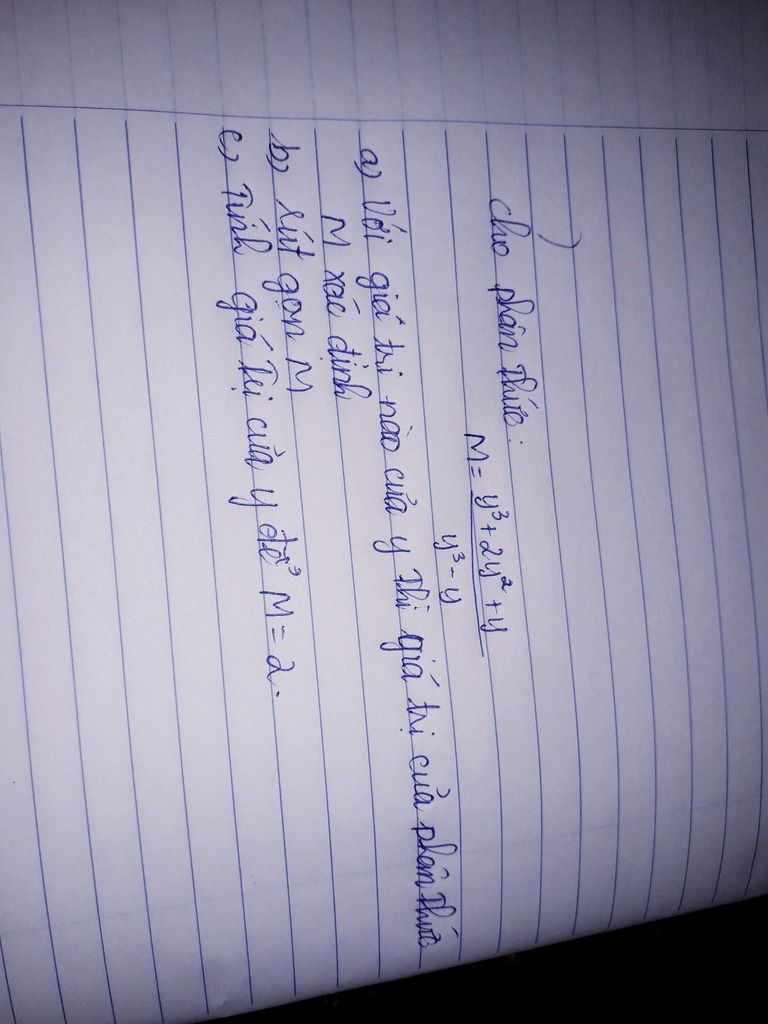 )
Cho phân thức:
M = y³ + 2y² + y
y³ - y
a) Với giá trị nào của y thì giá trị của phân thức
M xác định
b) rút gọn M
c) Tính giá trị của y để M = 2.